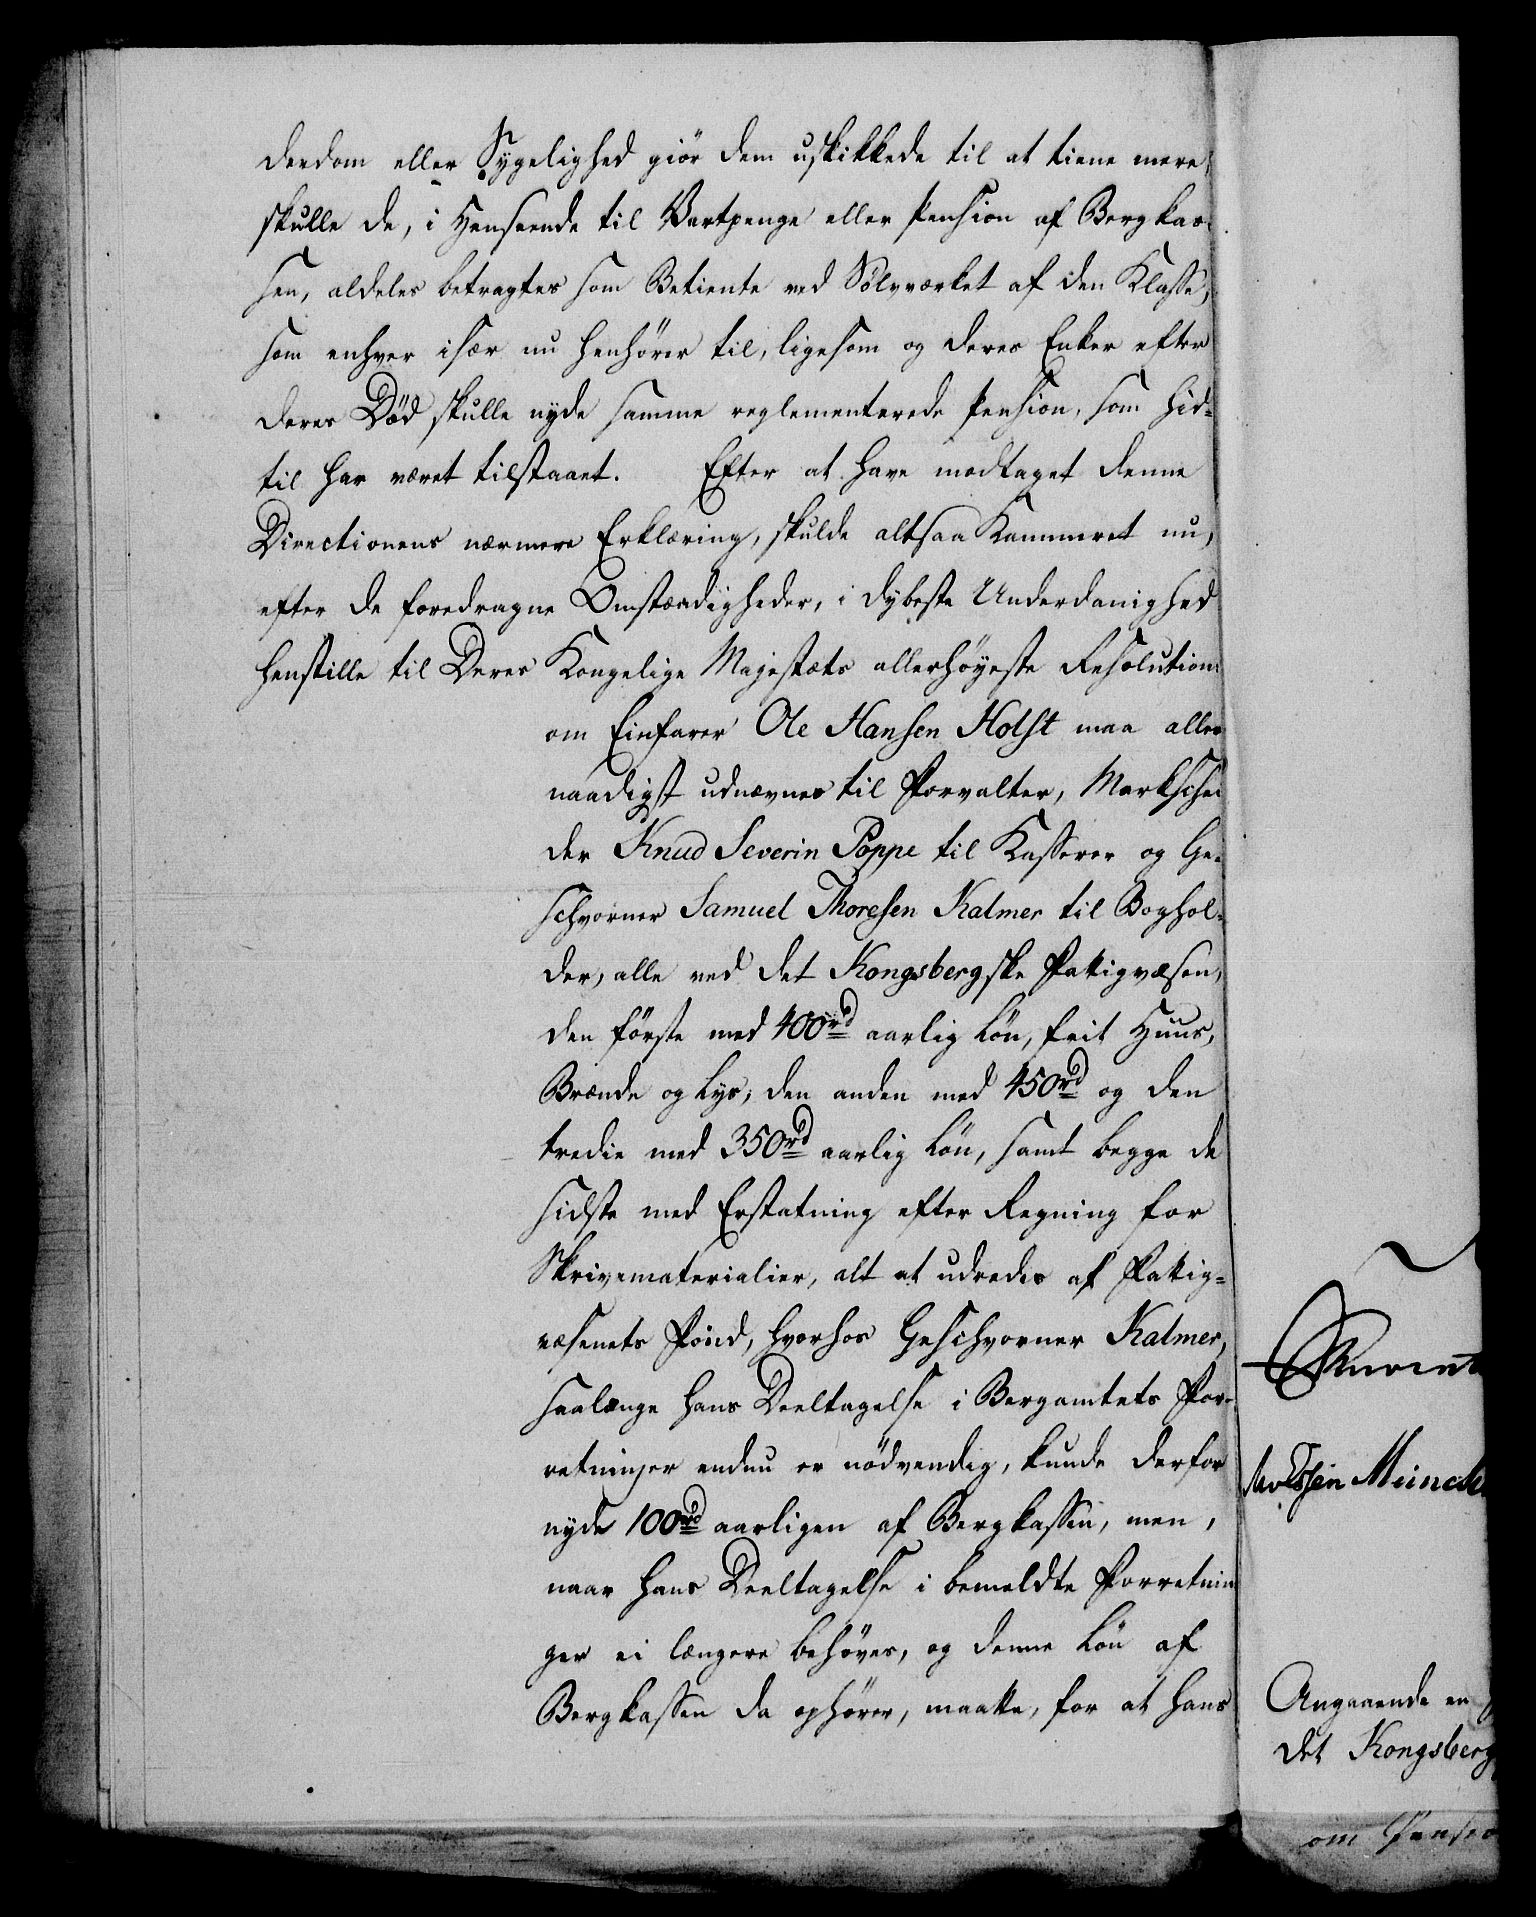 derdom eller Sygelighed giör dem uskikkede til at tiene mere,
skulle de, i Henseende til Vartpenge eller Pension af Bergkas-
sen, aldeles betragtes som Betiente ved Sölvværket af den Klasse,
som enhver især nu henhörer til, ligesom og deres Enker efter
deres Död skulle nyde samme reglementerede Pension, som hid-
til har været tilstaaet. Efter at have modtaget denne
Directionens nærmere Erklæring, skulde altsaa Kammeret nu,
efter de foredragne Omstændigheder, i dybeste Underdanighed
henstille til Deres Kongelige Majestæts allerhöyeste Resolution:
om Einfarer Ole Hansen Holst maa aller
naadigst udnævnes til Forvalter, Markschei
der Knud Severin Poppe til Kasserer og Ge-
schvorner Samuel Thoresen Kalmer til Boghol-
der, alle ved det Kongsbergske Fattigvæsen,
den förste med 400 rd aarlig Lön, frit Huus,
Brænde og Lys, den anden med 450 rd og den
tredie med 350 rd aarlig Lön, samt begge de
sidste med Erstatning efter Regning for
Skrivematerialier, alt at udredes af Fattig-
væsenets Fond, hvorhos Geschvorner Kalmer,
saalænge hans Deeltagelse i Bergamtets For-
retninger endnu er nödvendig, kunde derfor
nyde 100 rd aarligen af Bergkassen, men,
naar hans Deeltagelse i bemeldte Forretnin
ger ei længere behöves, og denne Lön af
Bergkassen da ophörer, maatte, for at hans
Angaaende en
det Kongsberg
om Pensio